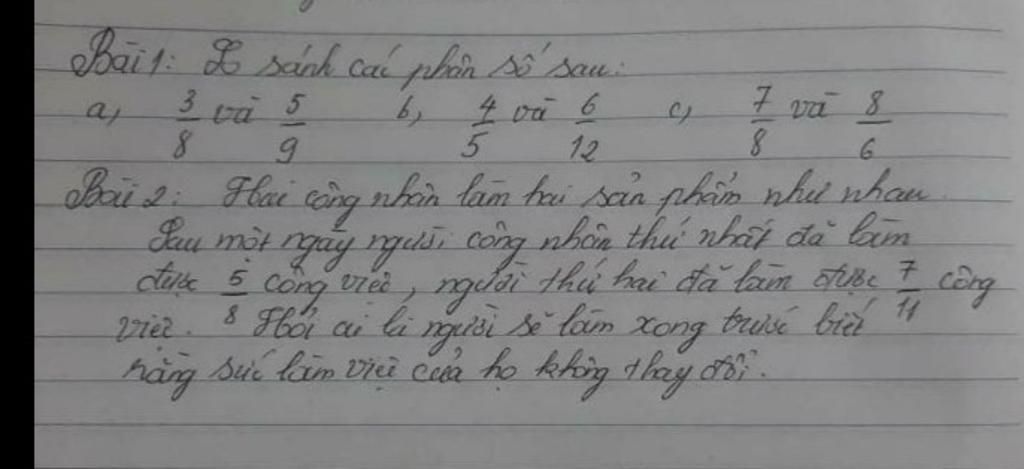 Bài 1: So sánh các phân số sau:
a, 3/8 và 5/9 b, 4/5 và 6/12 c, 7/8 và 8/6
Bài 2: Hai công nhân làm hai sản phẩm như nhau.
Sau một ngày người công nhân thứ nhất đã làm
được 5/8 công việc, người thứ hai đã làm được 7/11 công
việc. Hỏi ai là người sẽ làm xong trước biết
rằng sức làm việc của họ không thay đổi.